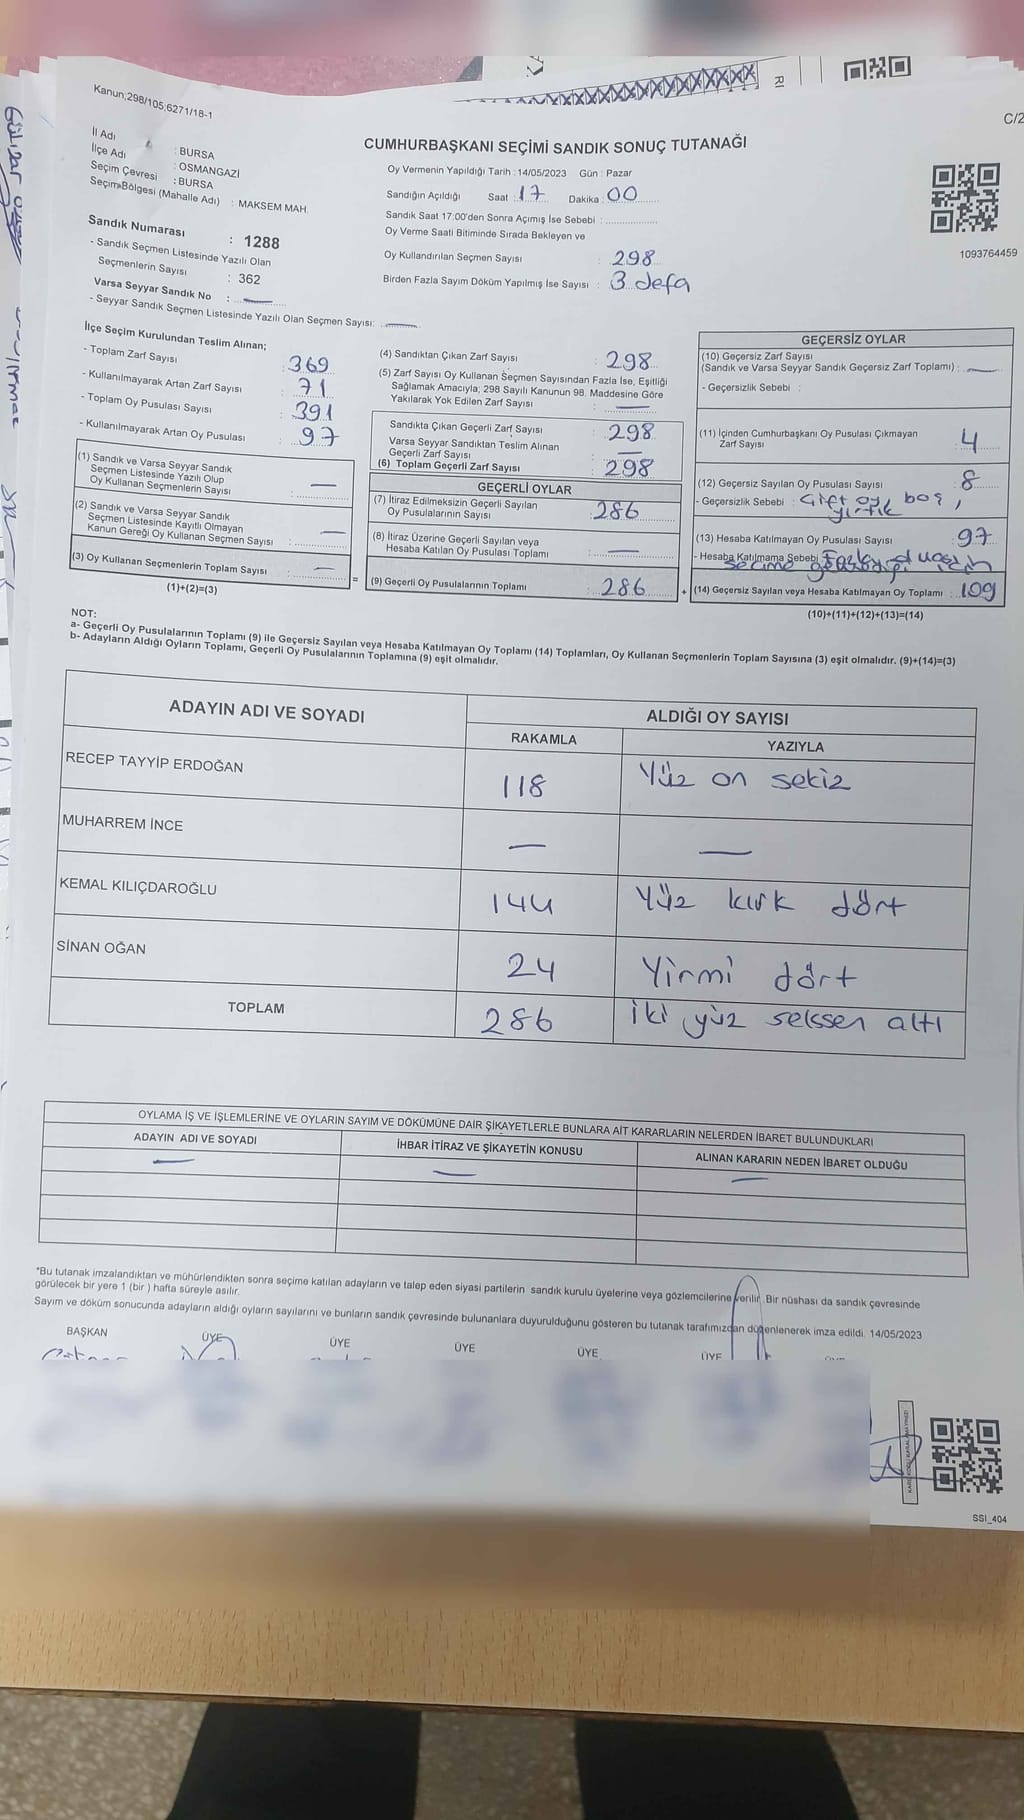 Kanun;298/105;6271/18-1
C/2
CUMHURBAŞKANI SEÇİMİ SANDIK SONUÇ TUTANAĞI
İl Adı : BURSA
İlçe Adı : OSMANGAZİ
Seçim Çevresi : BURSA
Seçim Bölgesi (Mahalle Adı) : MAKSEM MAH.
Sandık Numarası : 1288
- Sandık Seçmen Listesinde Yazılı Olan
Seçmenlerin Sayısı : 362
Varsa Seyyar Sandık No : —
- Seyyar Sandık Seçmen Listesinde Yazılı Olan Seçmen Sayısı: —
Oy Vermenin Yapıldığı Tarih : 14/05/2023 Gün : Pazar
Sandığın Açıldığı Saat : 17 Dakika : 00
Sandık Saat 17:00'den Sonra Açımış İse Sebebi :
Oy Verme Saati Bitiminde Sırada Bekleyen ve
Oy Kullandırılan Seçmen Sayısı : 298
Birden Fazla Sayım Döküm Yapılmış İse Sayısı : 3 defa
1093764459
İlçe Seçim Kurulundan Teslim Alınan;
- Toplam Zarf Sayısı : 369
- Kullanılmayarak Artan Zarf Sayısı : 71
- Toplam Oy Pusulası Sayısı : 391
- Kullanılmayarak Artan Oy Pusulası : 97
(1) Sandık ve Varsa Seyyar Sandık
Seçmen Listesinde Yazılı Olup
Oy Kullanan Seçmenlerin Sayısı : —
(2) Sandık ve Varsa Seyyar Sandık
Seçmen Listesinde Kayıtlı Olmayan
Kanun Gereği Oy Kullanan Seçmen Sayısı : —
(3) Oy Kullanan Seçmenlerin Toplam Sayısı : —
(1)+(2)=(3)
=
(4) Sandıktan Çıkan Zarf Sayısı : 298
(5) Zarf Sayısı Oy Kullanan Seçmen Sayısından Fazla İse, Eşitliği
Sağlamak Amacıyla; 298 Sayılı Kanunun 98. Maddesine Göre
Yakılarak Yok Edilen Zarf Sayısı : —
Sandıkta Çıkan Geçerli Zarf Sayısı : 298
Varsa Seyyar Sandıktan Teslim Alınan
Geçerli Zarf Sayısı : —
(6) Toplam Geçerli Zarf Sayısı : 298
GEÇERLİ OYLAR
(7) İtiraz Edilmeksizin Geçerli Sayılan
Oy Pusulalarının Sayısı : 286
(8) İtiraz Üzerine Geçerli Sayılan veya
Hesaba Katılan Oy Pusulası Toplamı : —
(9) Geçerli Oy Pusulalarının Toplamı : 286
+
GEÇERSİZ OYLAR
(10) Geçersiz Zarf Sayısı
(Sandık ve Varsa Seyyar Sandık Geçersiz Zarf Toplamı) : —
- Geçersizlik Sebebi :
(11) İçinden Cumhurbaşkanı Oy Pusulası Çıkmayan
Zarf Sayısı : 4
(12) Geçersiz Sayılan Oy Pusulası Sayısı : 8
- Geçersizlik Sebebi : Çift oy, boş,
yırtık
(13) Hesaba Katılmayan Oy Pusulası Sayısı : 97
- Hesaba Katılmama Sebebi
(14) Geçersiz Sayılan veya Hesaba Katılmayan Oy Toplamı : 109
(10)+(11)+(12)+(13)=(14)
NOT:
a- Geçerli Oy Pusulalarının Toplamı (9) ile Geçersiz Sayılan veya Hesaba Katılmayan Oy Toplamı (14) Toplamları, Oy Kullanan Seçmenlerin Toplam Sayısına (3) eşit olmalıdır. (9)+(14)=(3)
b- Adayların Aldığı Oyların Toplamı, Geçerli Oy Pusulalarının Toplamına (9) eşit olmalıdır.
ADAYIN ADI VE SOYADI ALDIĞI OY SAYISI
RAKAMLA YAZIYLA
RECEP TAYYİP ERDOĞAN 118 Yüz on sekiz
MUHARREM İNCE — —
KEMAL KILIÇDAROĞLU 144 Yüz kırk dört
SİNAN OĞAN 24 Yirmi dört
TOPLAM 286 İki yüz seksen altı
OYLAMA İŞ VE İŞLEMLERİNE VE OYLARIN SAYIM VE DÖKÜMÜNE DAİR ŞİKAYETLERLE BUNLARA AİT KARARLARIN NELERDEN İBARET BULUNDUKLARI
ADAYIN ADI VE SOYADI İHBAR İTİRAZ VE ŞİKAYETİN KONUSU ALINAN KARARIN NEDEN İBARET OLDUĞU
— — —
*Bu tutanak imzalandıktan ve mühürlendikten sonra seçime katılan adayların ve talep eden siyasi partilerin sandık kurulu üyelerine veya gözlemcilerine verilir. Bir nüshası da sandık çevresinde
görülecek bir yere 1 (bir ) hafta süreyle asılır.
Sayım ve döküm sonucunda adayların aldığı oyların sayılarını ve bunların sandık çevresinde bulunanlara duyurulduğunu gösteren bu tutanak tarafımızdan düzenlenerek imza edildi. 14/05/2023
BAŞKAN ÜYE ÜYE ÜYE ÜYE ÜYE
SSI_404